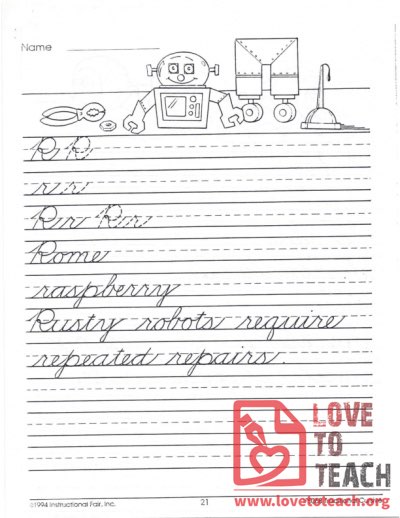 Name
R R
r r r
Rr Rr
Rome
raspberry
Rusty robots require
repeated repairs.
LOVE
TO
TEACH
©1994 Instructional Fair, Inc.
21
www.lovetoteach.org